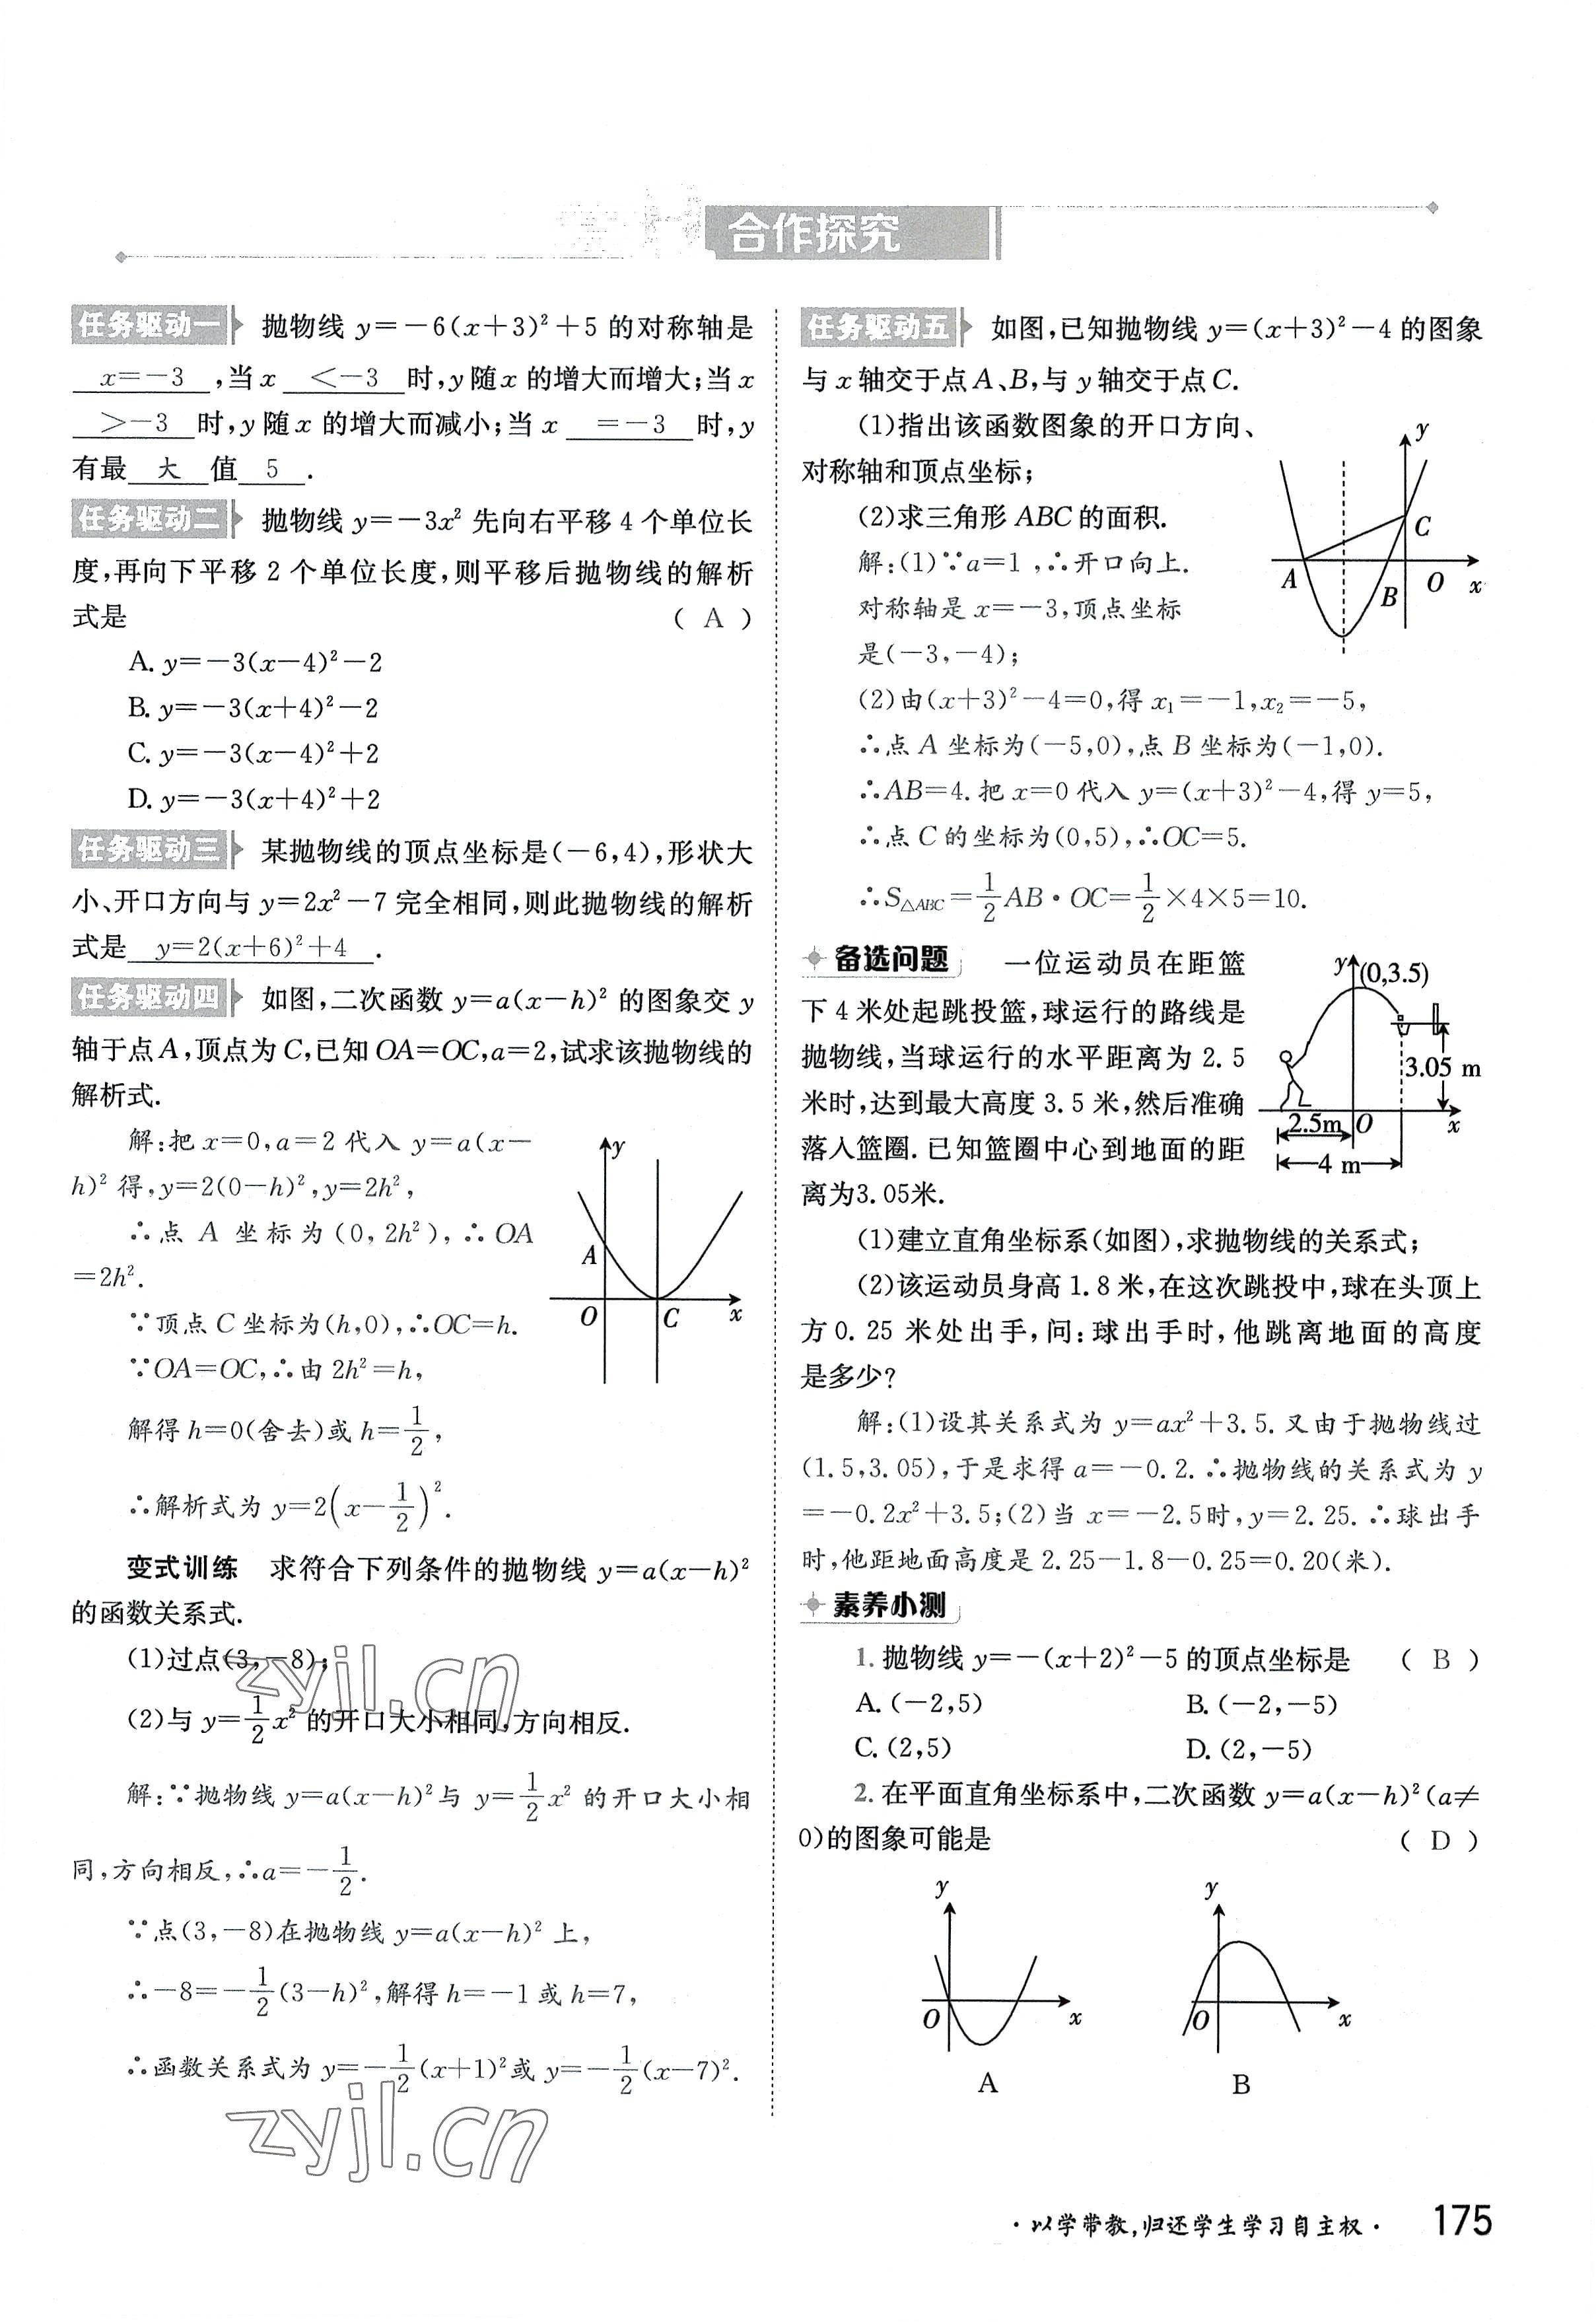 合作探究
任务驱动一 抛物线 y=-6(x+3)²+5 的对称轴是
x=-3 ,当 x <-3 时,y 随 x 的增大而增大;当 x
>-3 时,y 随 x 的增大而减小;当 x =-3 时,y
有最 大 值 5 .
任务驱动二 抛物线 y=-3x² 先向右平移 4 个单位长
度,再向下平移 2 个单位长度,则平移后抛物线的解析
式是 ( A )
A. y=-3(x-4)²-2
B. y=-3(x+4)²-2
C. y=-3(x-4)²+2
D. y=-3(x+4)²+2
任务驱动三 某抛物线的顶点坐标是(-6,4),形状大
小、开口方向与 y=2x²-7 完全相同,则此抛物线的解析
式是 y=2(x+6)²+4 .
任务驱动四 如图,二次函数 y=a(x-h)² 的图象交 y
轴于点 A,顶点为 C,已知 OA=OC,a=2,试求该抛物线的
解析式.
解:把 x=0,a=2 代入 y=a(x-
h)² 得,y=2(0-h)²,y=2h²,
∴点 A 坐标为(0,2h²),∴OA
=2h².
∵顶点 C 坐标为(h,0),∴OC=h.
∵OA=OC,∴由 2h²=h,
解得 h=0(舍去)或 h=1/2,
∴解析式为 y=2(x-1/2)².
y
A
O C x
变式训练 求符合下列条件的抛物线 y=a(x-h)²
的函数关系式.
(1)过点(3,-8);
(2)与 y=1/2x² 的开口大小相同,方向相反.
解:∵抛物线 y=a(x-h)²与 y=1/2x² 的开口大小相
同,方向相反,∴a=-1/2.
∵点(3,-8)在抛物线 y=a(x-h)² 上,
∴-8=-1/2(3-h)²,解得 h=-1 或 h=7,
∴函数关系式为 y=-1/2(x+1)²或 y=-1/2(x-7)².
zyjl.cn
zyjl.cn
任务驱动五 如图,已知抛物线 y=(x+3)²-4 的图象
与 x 轴交于点 A、B,与 y 轴交于点 C.
(1)指出该函数图象的开口方向、
对称轴和顶点坐标;
(2)求三角形 ABC 的面积.
解:(1)∵a=1,∴开口向上.
对称轴是 x=-3,顶点坐标
是(-3,-4);
y
C
A B O x
(2)由(x+3)²-4=0,得 x₁=-1,x₂=-5,
∴点 A 坐标为(-5,0),点 B 坐标为(-1,0).
∴AB=4.把 x=0 代入 y=(x+3)²-4,得 y=5,
∴点 C 的坐标为(0,5),∴OC=5.
∴S△ABC=1/2AB·OC=1/2×4×5=10.
备选问题 一位运动员在距篮
下 4 米处起跳投篮,球运行的路线是
抛物线,当球运行的水平距离为 2.5
米时,达到最大高度 3.5 米,然后准确
落入篮圈.已知篮圈中心到地面的距
离为3.05米.
y (0,3.5)
3.05 m
2.5m O x
4 m
(1)建立直角坐标系(如图),求抛物线的关系式;
(2)该运动员身高 1.8 米,在这次跳投中,球在头顶上
方 0.25 米处出手,问:球出手时,他跳离地面的高度
是多少?
解:(1)设其关系式为 y=ax²+3.5.又由于抛物线过
(1.5,3.05),于是求得 a=-0.2.∴抛物线的关系式为 y
=-0.2x²+3.5;(2)当 x=-2.5时,y=2.25.∴球出手
时,他距地面高度是 2.25-1.8-0.25=0.20(米).
素养小测
1. 抛物线 y=-(x+2)²-5 的顶点坐标是 ( B )
A. (-2,5) B. (-2,-5)
C. (2,5) D. (2,-5)
2. 在平面直角坐标系中,二次函数 y=a(x-h)²(a≠
0)的图象可能是 ( D )
y y
O x O x
A B
·以学带教,归还学生学习自主权· 175